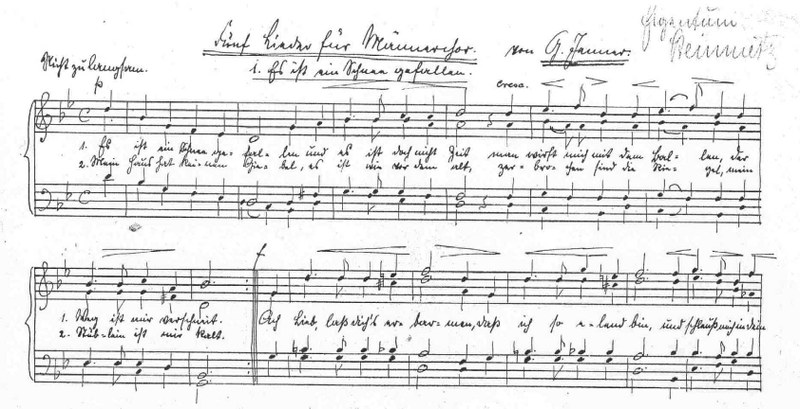 Fünf Lieder für Männerchor. von G. Jenner.
Eigentum
Steinmetz
Nicht zu langsam.
1. Es ist ein Schnee gefallen.
p
cresc.
1. Es ist ein Schnee ge- fal- len und es ist doch nicht Zeit man wirft mich mit dem Bal- len, der
2. Mein Haus hat kei- nen Gie- bel, es ist mir worden alt, zer- bro- chen sind die Rie- gel, mein
f
1. Weg ist mir verschneit. Ach Lieb, laß dich's er- bar- men, daß ich so e- lend bin, und schleuß mich in dein
2. Stüb- lein ist mir kalt.